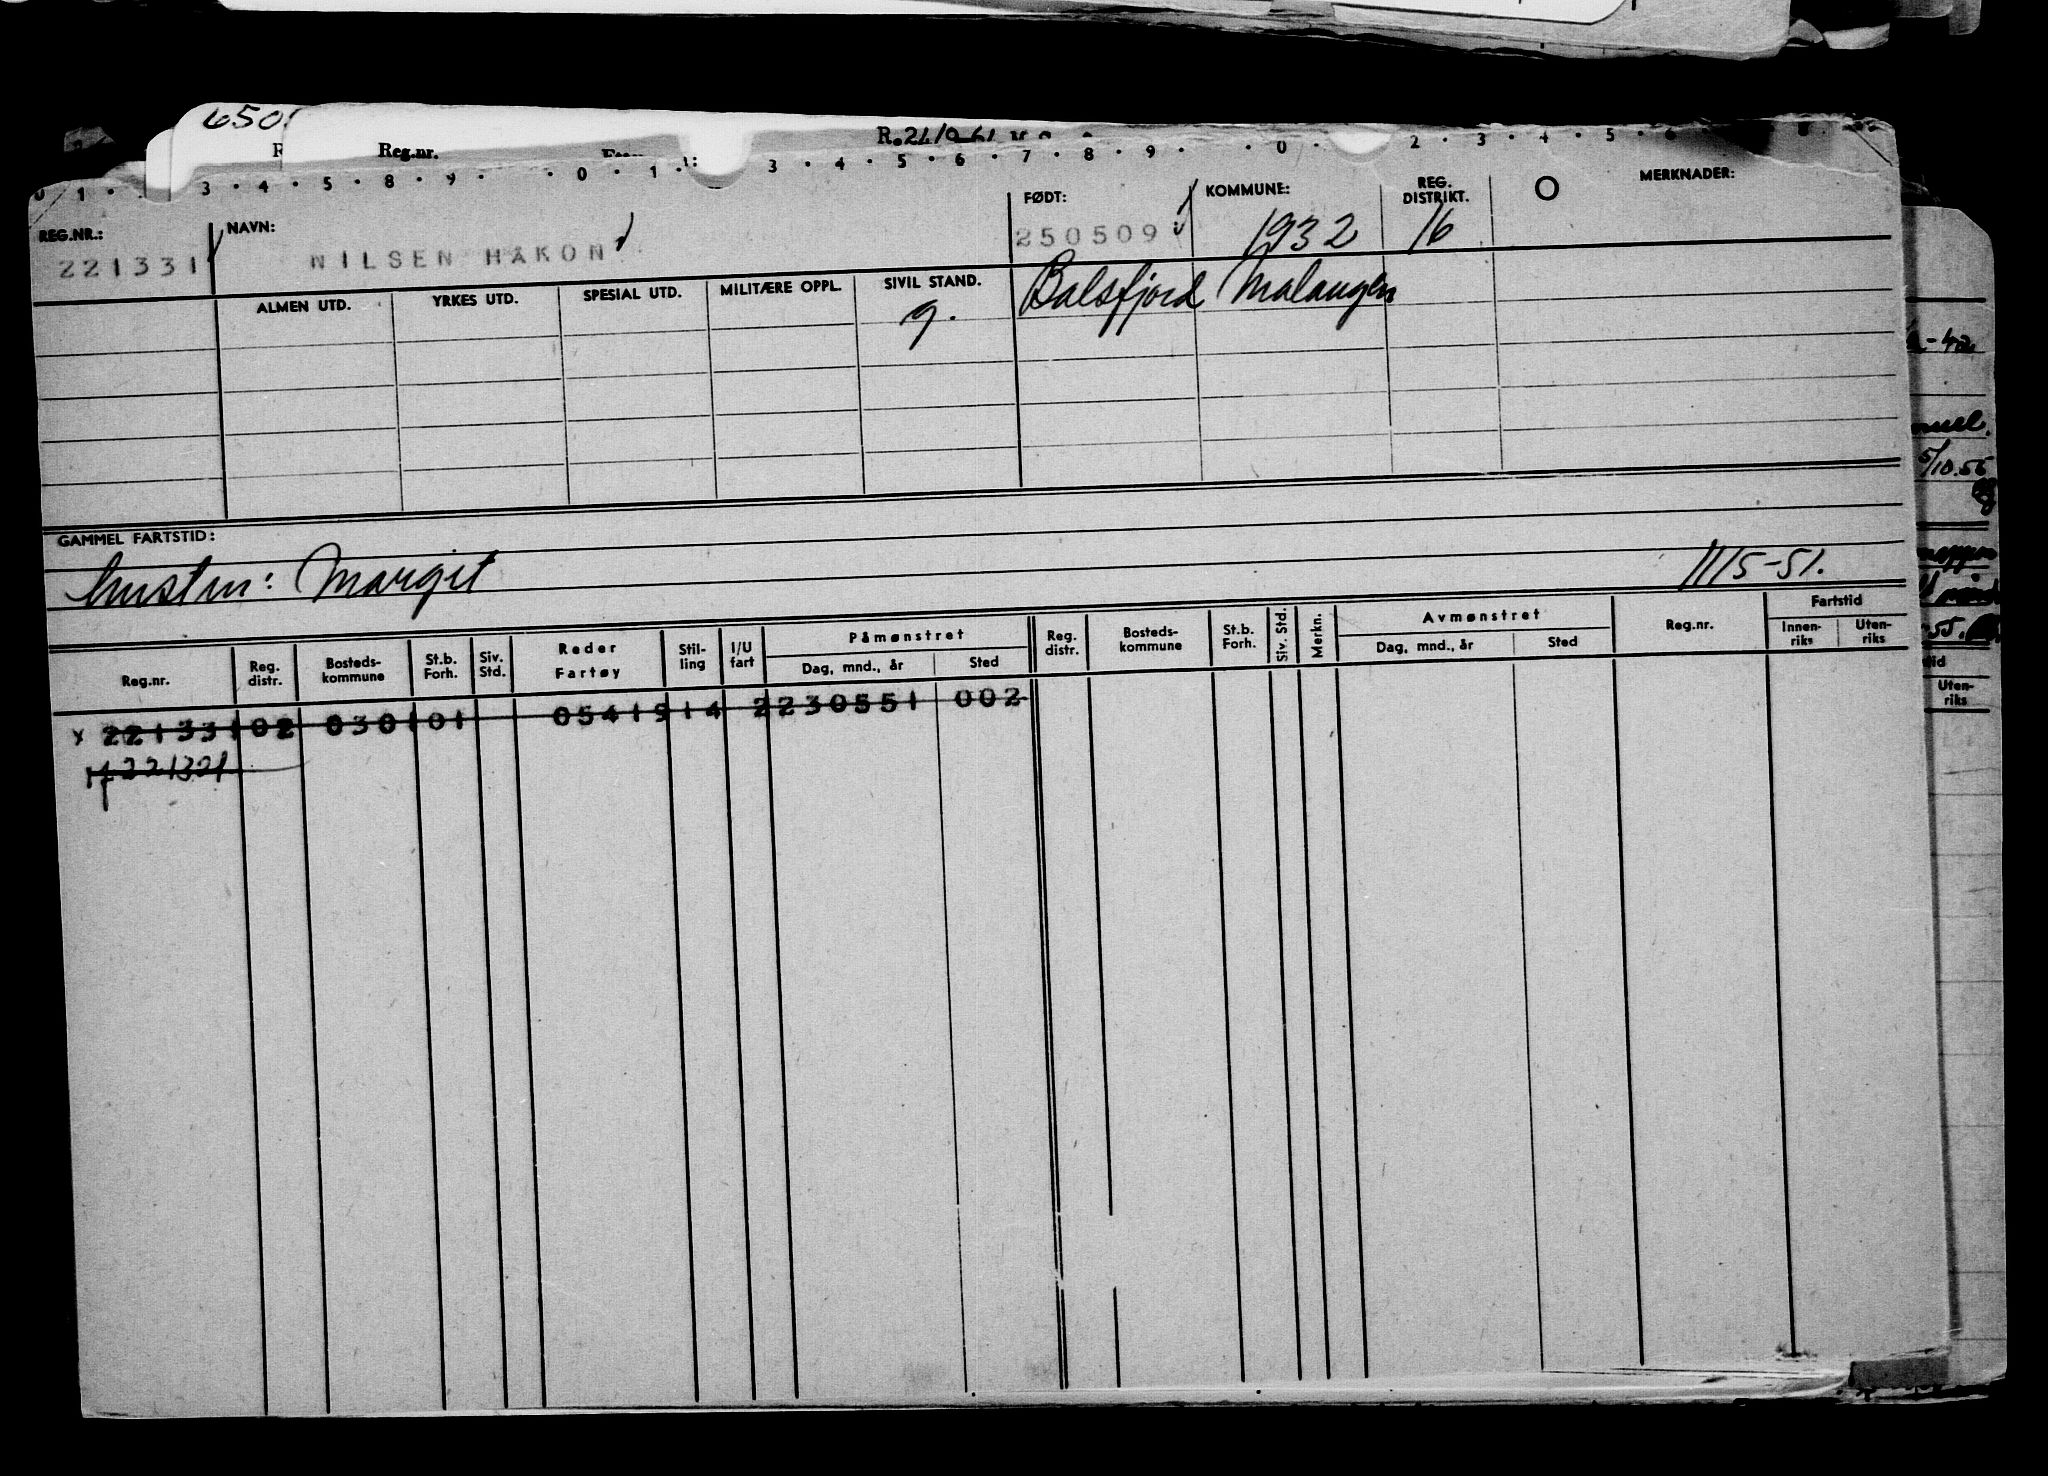 650
R.
Reg.nr.
0 1 · 3 · 4 · 5 · 8 · 9 · · 0 · 1 · 3 · 4 · 5 · 6 · 7 · 8 · 9 · · 0 · 2 · 3 · 4 · 5 · 6 · 8
REG.NR.: NAVN: FØDT: KOMMUNE: REG. DISTRIKT. O MERKNADER:
221331 NILSEN HÅKON 250509 1932 16
ALMEN UTD. YRKES UTD. SPESIAL UTD. MILITÆRE OPPL. SIVIL STAND. Balsfjord Malangen
g.
GAMMEL FARTSTID:
hustru: Margit 11/5-51.
Reg.nr. Reg. distr. Bosteds- kommune St.b. Forh. Siv. Std. Reder Fartøy Stil- ling I/U fart Påmønstret Dag, mnd., år Sted Reg. distr. Bosteds- kommune St.b. Forh. Siv. Std. Merkn. Avmønstret Dag, mnd., år Sted Reg.nr. Fartstid Innen- riks Uten- riks
x 221331 02 0301 01 05419 14 2 230551 002
221321
5/10.55
Uten-
riks